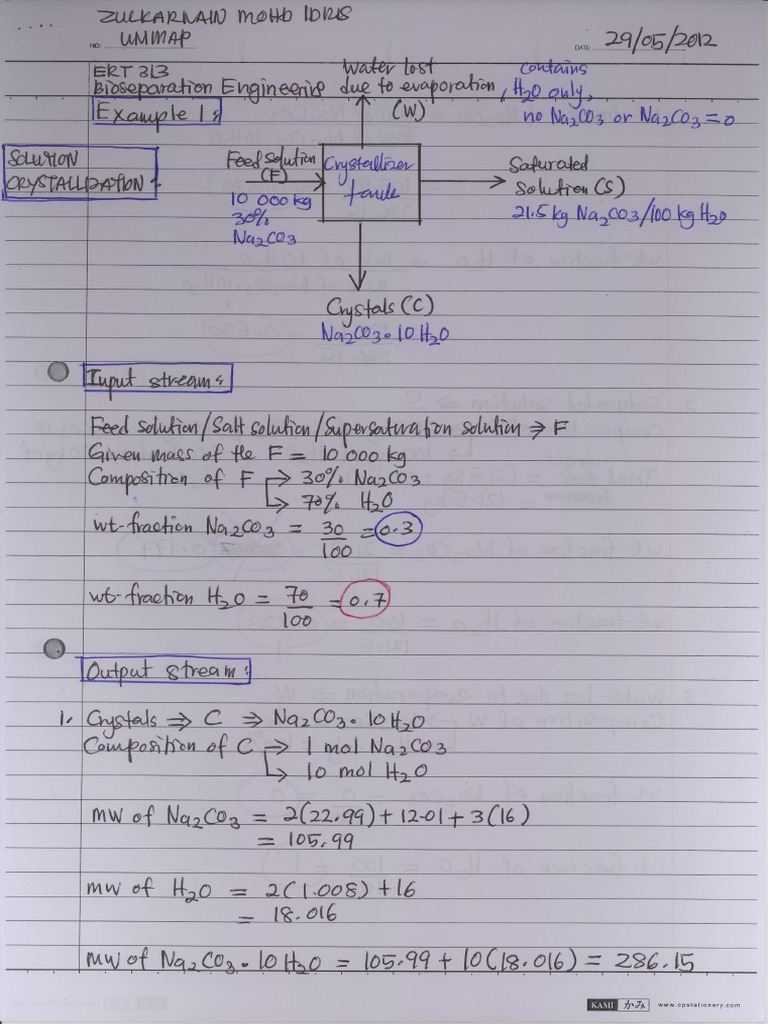 ZULKARNAIN MOHD IDRIS
NO: UMMAP
DATE: 29/05/2012
ERT 313
Bioseparation Engineering
Example 1:
SOLUTION
CRYSTALLIZATION
Water lost
due to evaporation,
(W)
contains
H2O only,
no Na2CO3 or Na2CO3 = 0
Feed solution
(F)
10 000 kg
30%
Na2CO3
Crystallizer
tank
Saturated
solution (S)
21.5 kg Na2CO3/100 kg H2O
Crystals (C)
Na2CO3 • 10 H2O
Input stream:
Feed solution/Salt solution/Supersaturation solution ⇒ F
Given mass of the F = 10 000 kg
Composition of F → 30% Na2CO3
↳ 70% H2O
wt-fraction Na2CO3 = 30/100 = 0.3
wt-fraction H2O = 70/100 = 0.7
Output stream:
1. Crystals ⇒ C ⇒ Na2CO3 • 10 H2O
Composition of C → 1 mol Na2CO3
↳ 10 mol H2O
MW of Na2CO3 = 2(22.99) + 12.01 + 3(16)
= 105.99
MW of H2O = 2(1.008) + 16
= 18.016
MW of Na2CO3 • 10 H2O = 105.99 + 10(18.016) = 286.15
KAMI かみ www.cpstationery.com